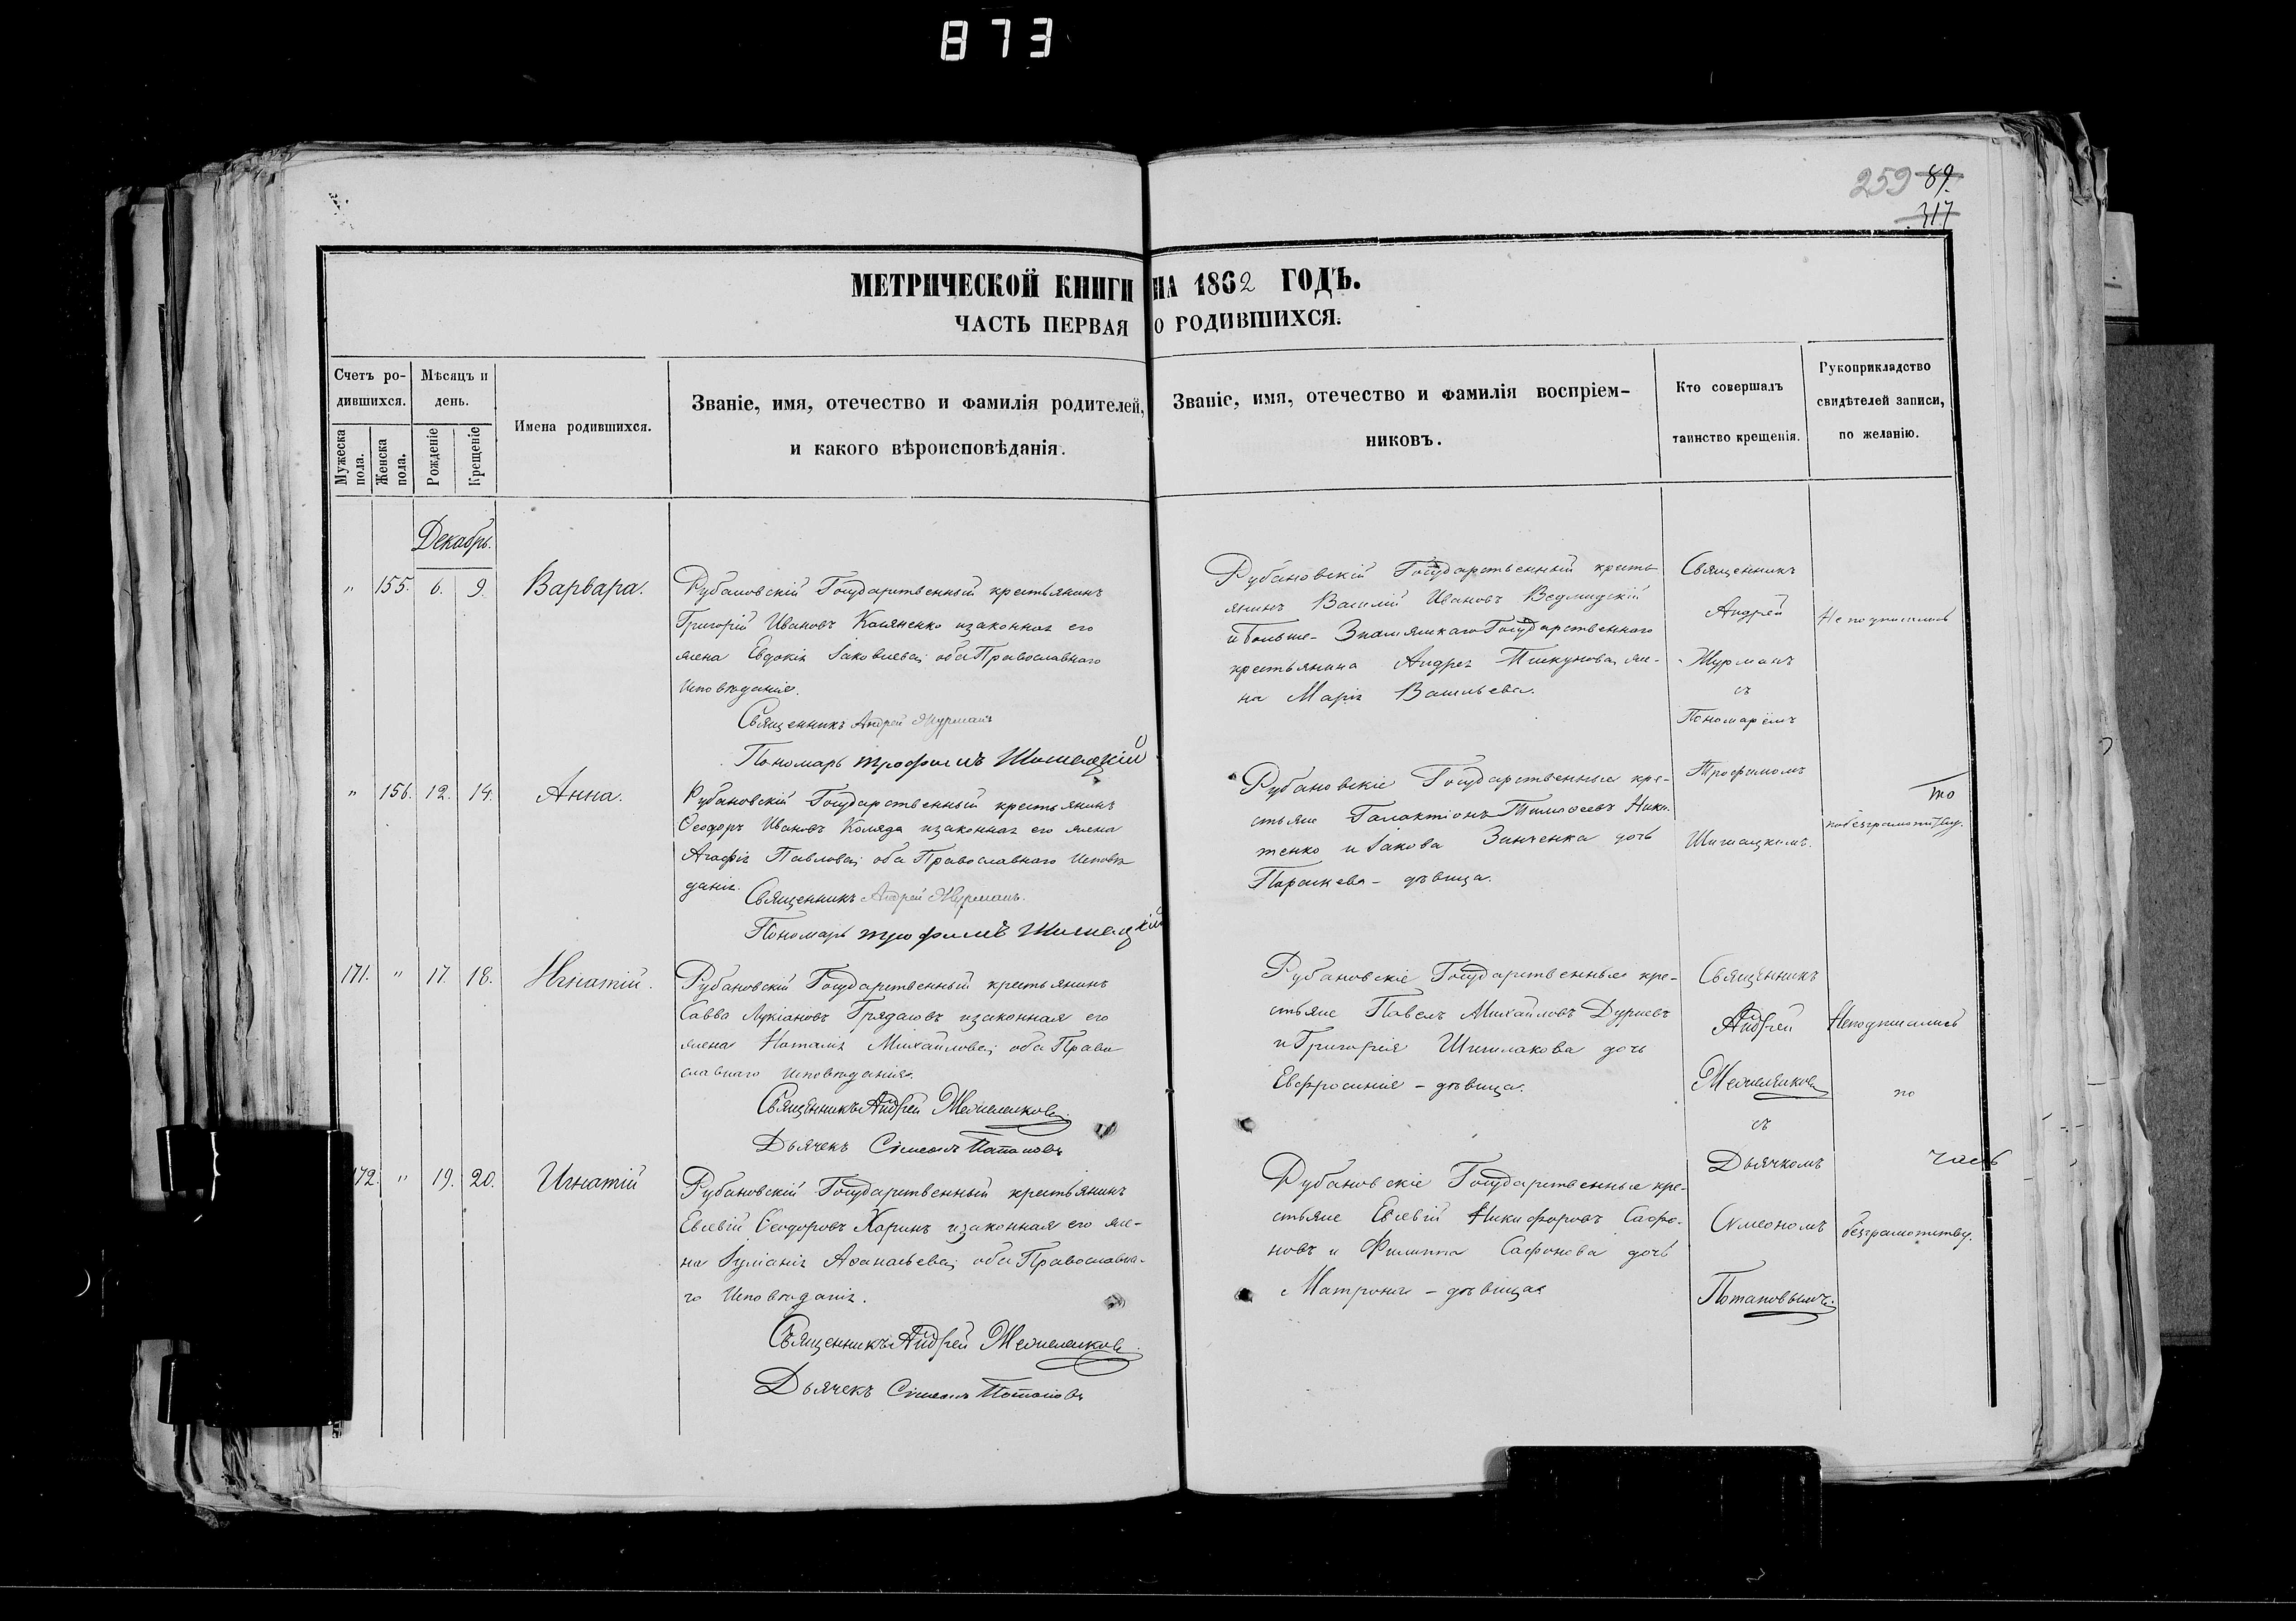 873
259 89.
317
МЕТРИЧЕСКОЙ КНИГИ НА 1862 ГОДЪ.
ЧАСТЬ ПЕРВАЯ О РОДИВШИХСЯ.
Счетъ ро-
дившихся.
Мужеска
пола.
Женска
пола.
Мѣсяцъ и
день.
Рожденіе
Крещеніе
Имена родившихся.
Званіе, имя, отечество и фамилія родителей,
и какого вѣроисповѣданія.
Званіе, имя, отечество и фамилія воспріем-
никовъ.
Кто совершалъ
таинство крещенія.
Рукоприкладство
свидѣтелей записи,
по желанію.
Декабрь.
" 155. 6. 9. Варвара.
Рубановскій Государственный крестьянинъ
Григорій Ивановъ Касяненко изаконная его
жена Евдокія Іаковлева; оба Православнаго
Исповѣданія.
Священникъ Андрей Журманъ
Пономарь Трофимъ Шишацкій
Рубановскій Государственный кресть
янинъ Василій Ивановъ Ведмидскій
и Больше-Знаменскаго Государственнаго
крестьянина Андрея Пискунова же-
на Марія Васильева.
Священникъ
Андрей
Журманъ
съ
Пономарёмъ
Трофимомъ
Шишацкимъ.
Неподписались
то
побезграмотству.
" 156. 12. 14. Анна.
Рубановскій Государственный крестьянинъ
Ѳеодоръ Ивановъ Коляда изаконная его жена
Агафія Павлова; оба Православнаго Исповѣ
данія.
Священникъ Андрей Журманъ.
Пономарь Трофимъ Шишацкій
Рубановскіе Государственные кре-
стьяне Галактіонъ Тимоѳеевъ Ники-
тенко и Іакова Зинченка дочь
Параскева - дѣвица.
171. " 17. 18. Игнатій.
Рубановскій Государственный крестьянинъ
Савва Лукіановъ изаконная его
жена Наталія Михайлова; оба Право
славнаго Исповѣданія.
Священникъ Андрей
Дьячекъ Сімеонъ Потаповъ
Рубановскіе Государственные кре-
стьяне Павелъ Михайловъ
и Григорія Шишлакова дочь
Евфросинія - дѣвица.
Священникъ
Андрей
съ
Дьячкомъ
Сѵмеономъ
Потаповымъ.
Неподписались
по
безграмотству.
172. " 19. 20. Игнатій
Рубановскій Государственный крестьянинъ
Евсевій Ѳеодоровъ Харинъ изаконная его же-
на Іуліанія Аѳанасьева; оба Православна-
го Исповѣданія.
Священникъ Андрей
Дьячекъ Сімеонъ Потаповъ
Рубановскіе Государственные кре-
стьяне Евсевій Никифоровъ Сафо-
новъ и Филиппа Сафонова дочь
Матрона - дѣвица